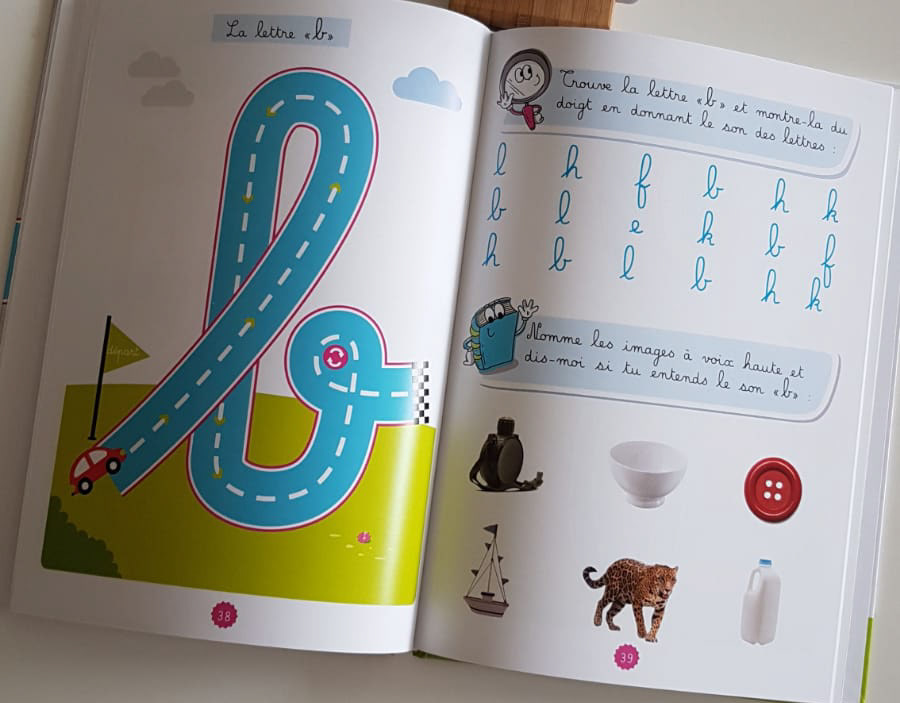 La lettre «b»
départ
38
Trouve la lettre «b» et montre-la du
doigt en donnant le son des lettres :
l h f b h k
b l e k b f
h b l b h k
Nomme les images à voix haute et
dis-moi si tu entends le son «b» :
39